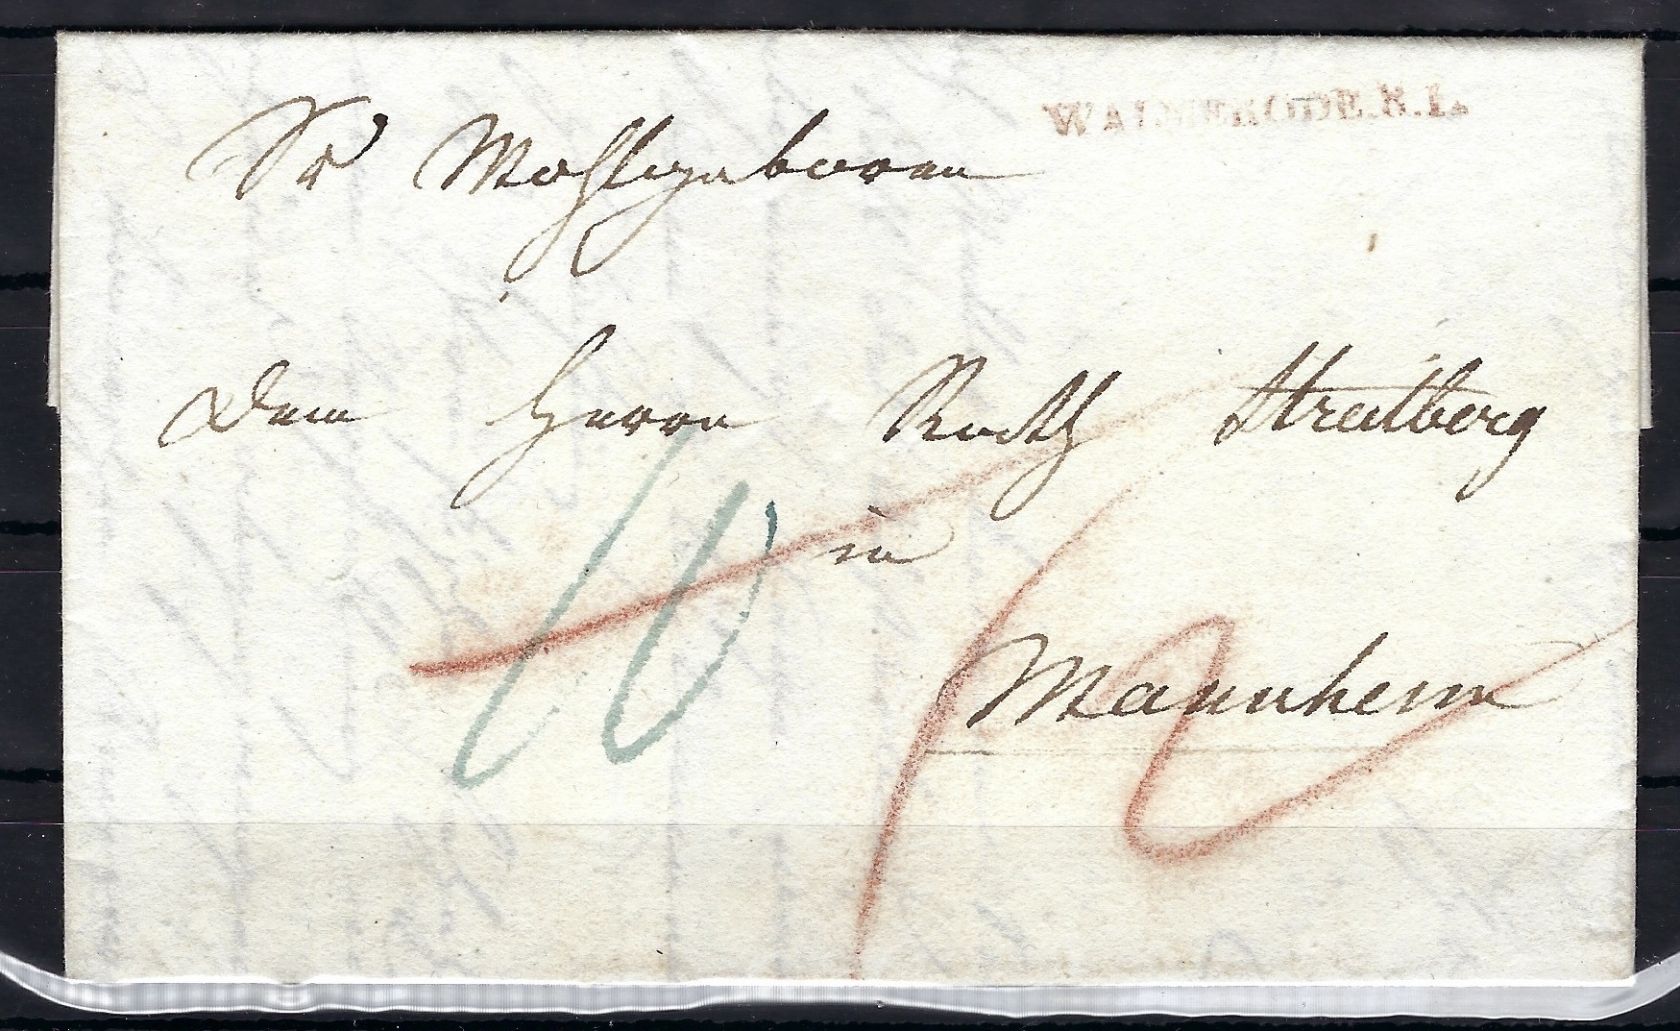 WALLMERODE.R.I.
Sr Wohlgeboren
dem Herrn Rath Streitberg
in
Mannheim
10
12